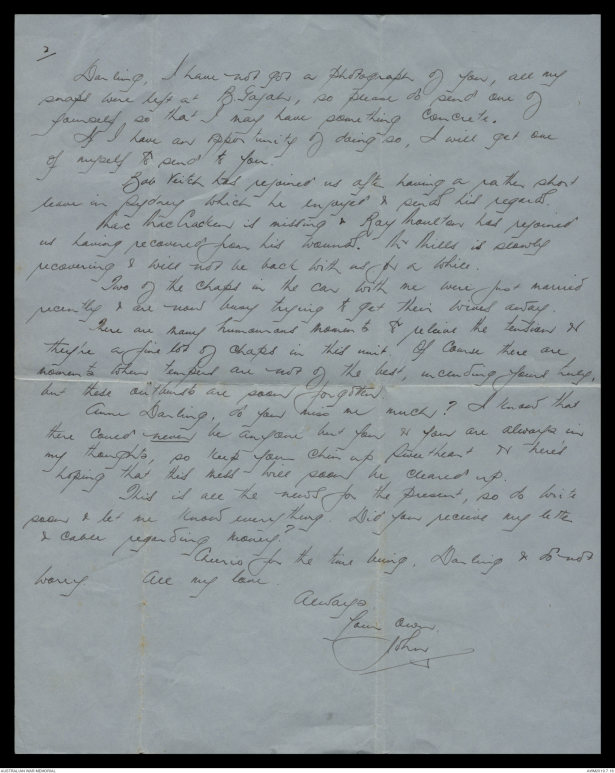 2/
Darling, I have not got a photograph of you, all my
snaps were left at B. Gajah, so please do send one of
yourself, so that I may have something concrete.
If I have an opportunity of doing so, I will get one
of myself to send to you.
Bob Veitch has rejoined us after having a rather short
leave in Sydney which he enjoyed & sends his regards.
Mac MacCracken is missing & Ray Moulton has rejoined
us having recovered from his wounds. Mills is slowly
recovering & will not be back with us for a while.
Two of the chaps in the car with me were just married
recently & are now busy trying to get their wives away.
There are many humourous moments to relieve the tension &
they're a fine lot of chaps in this unit. Of course there are
moments when tempers are not of the best, including yours truly,
but these outbursts are soon forgotten.
Darling, do you miss me much? I know that
there could never be anyone but you & you are always in
my thoughts, so keep your chin up Sweetheart & here's
hoping that this mess will soon be cleared up.
This is all the news for the present, so do write
soon & let me know everything. Did you receive my letter
& cable regarding money?
Cheerio for the time being, Darling & do not
worry. All my love.
Always,
Your own
John
AUSTRALIAN WAR MEMORIAL